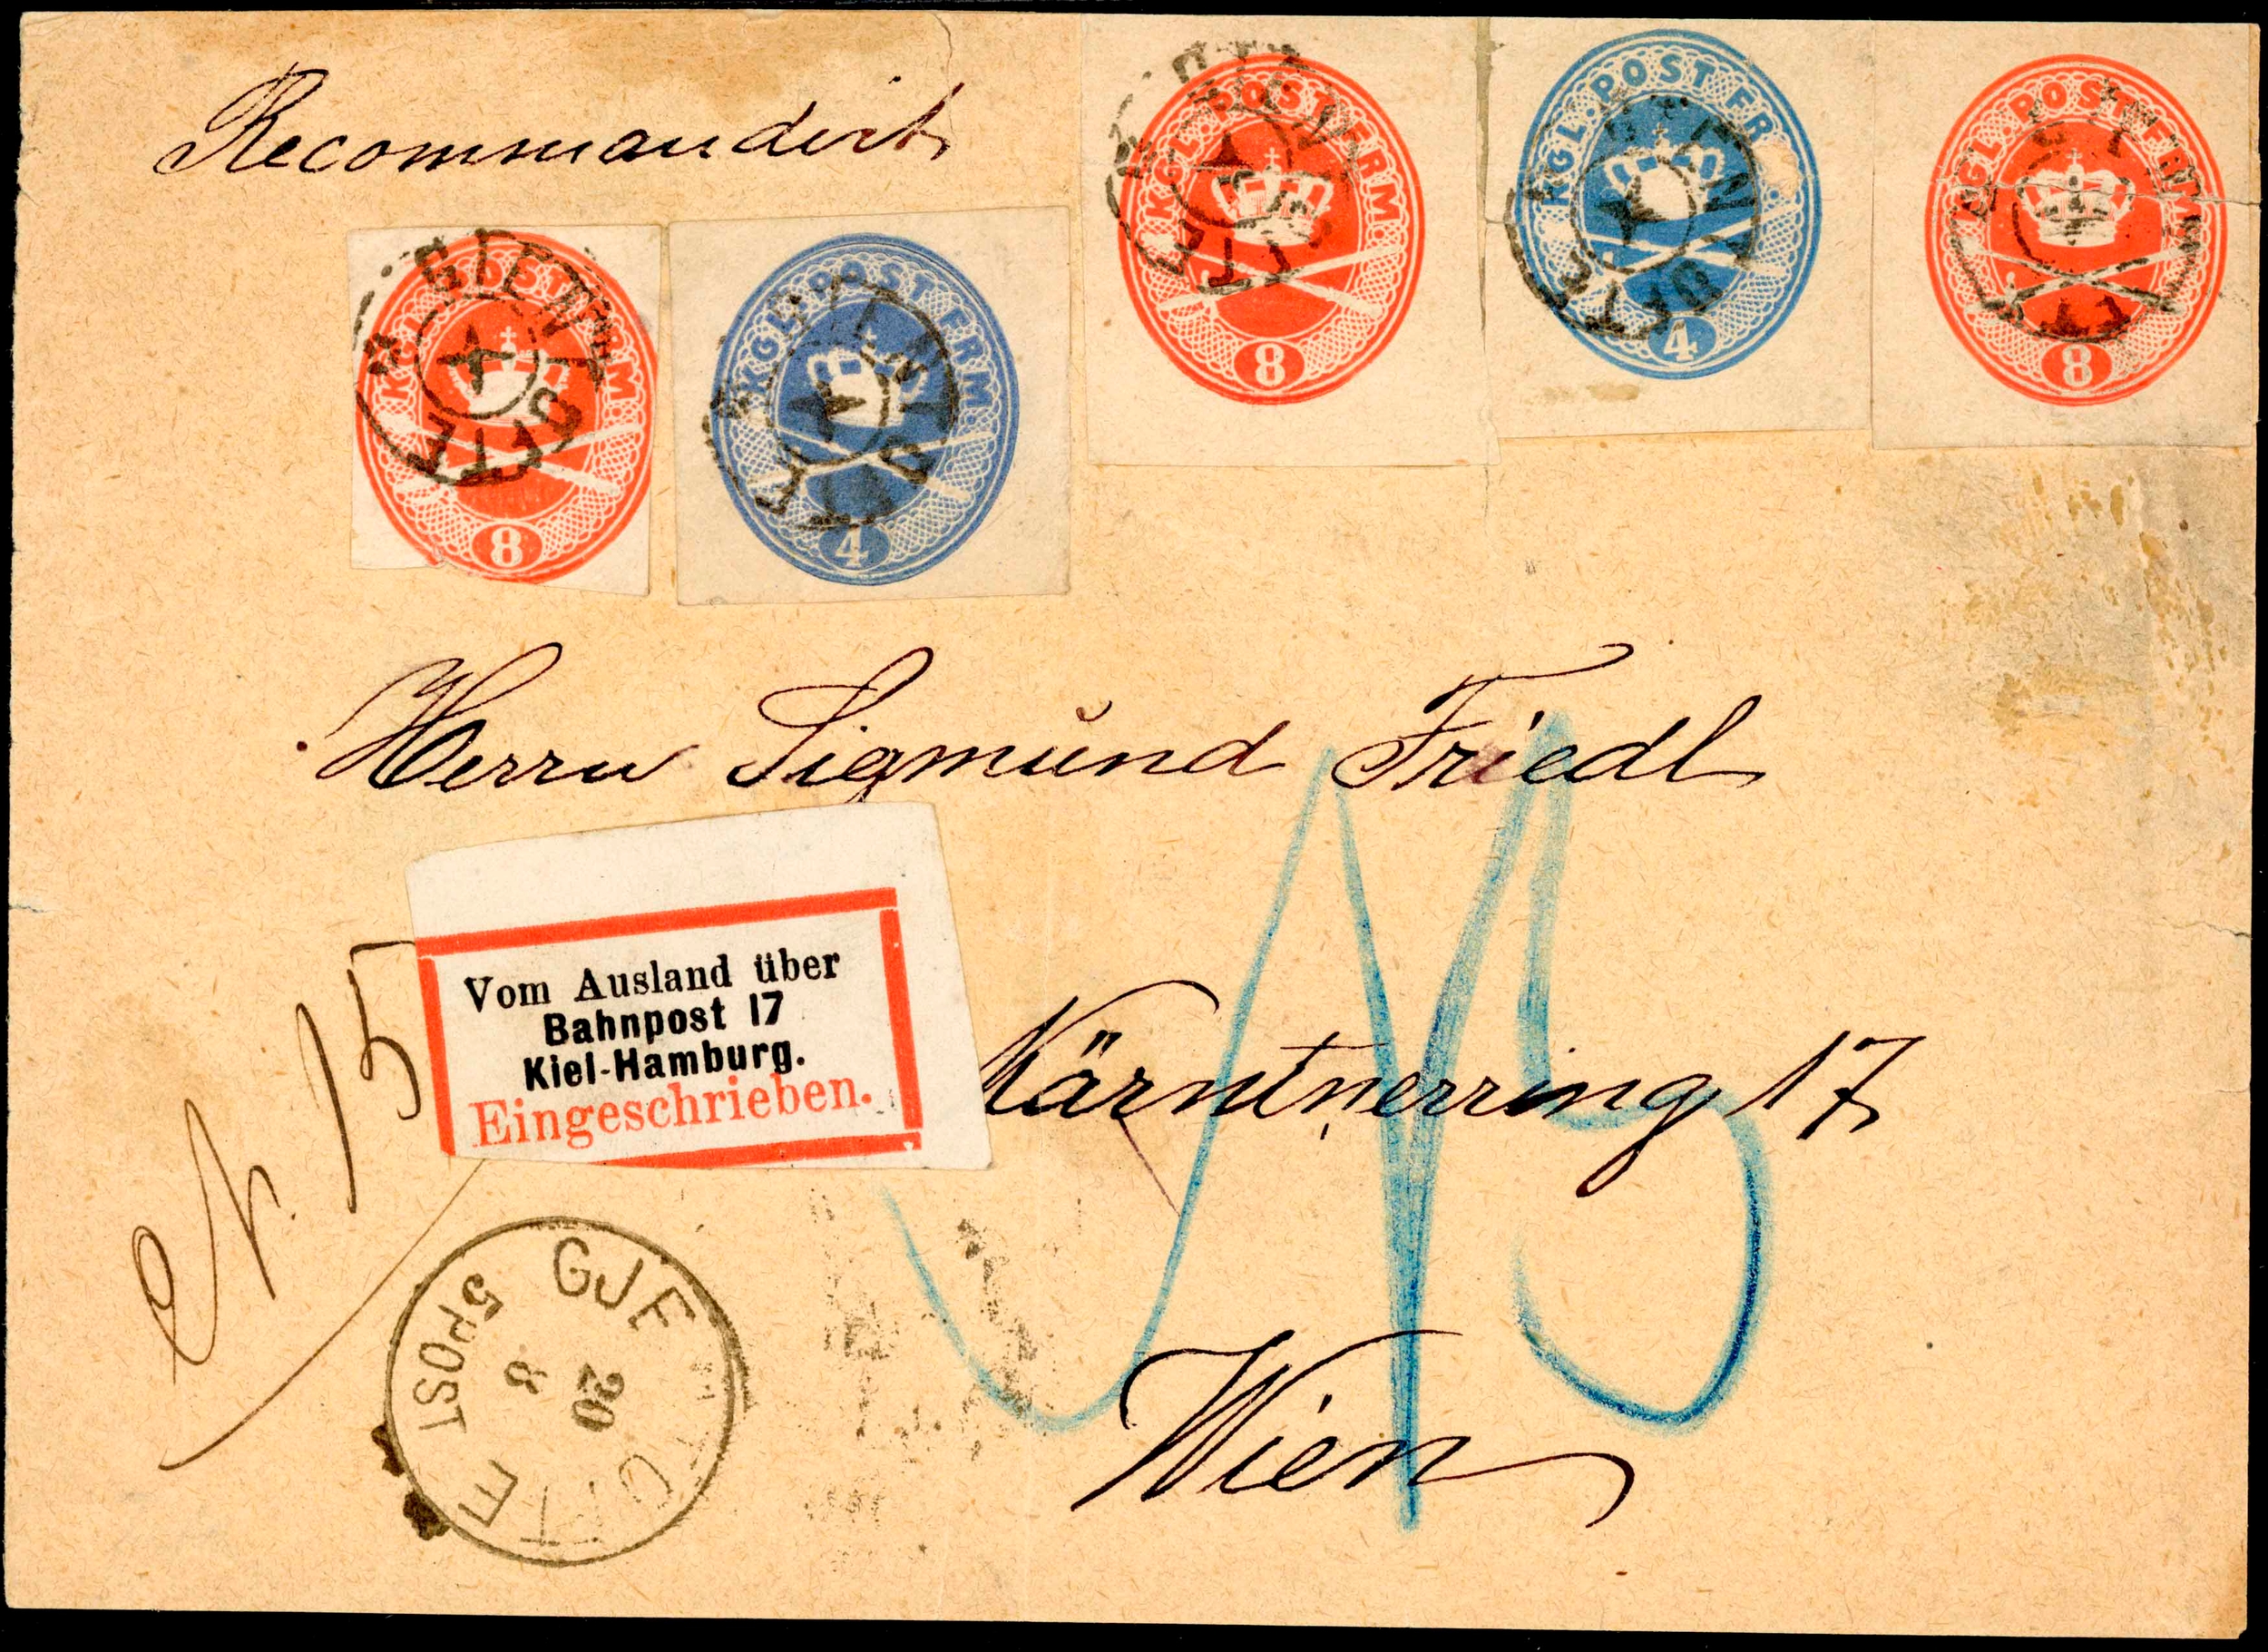 Recommandirt
KGL. POST FRM.
8
KGL. POST FRM.
4
KGL. POST FRM.
8
KGL. POST FR
4
KGL. POST FRM.
8
Herrn Sigmund Friedl
Vom Ausland über
Bahnpost 17
Kiel-Hamburg.
Eingeschrieben.
N. 15
Kärntnerring 17
Wien
5 POST
20
8